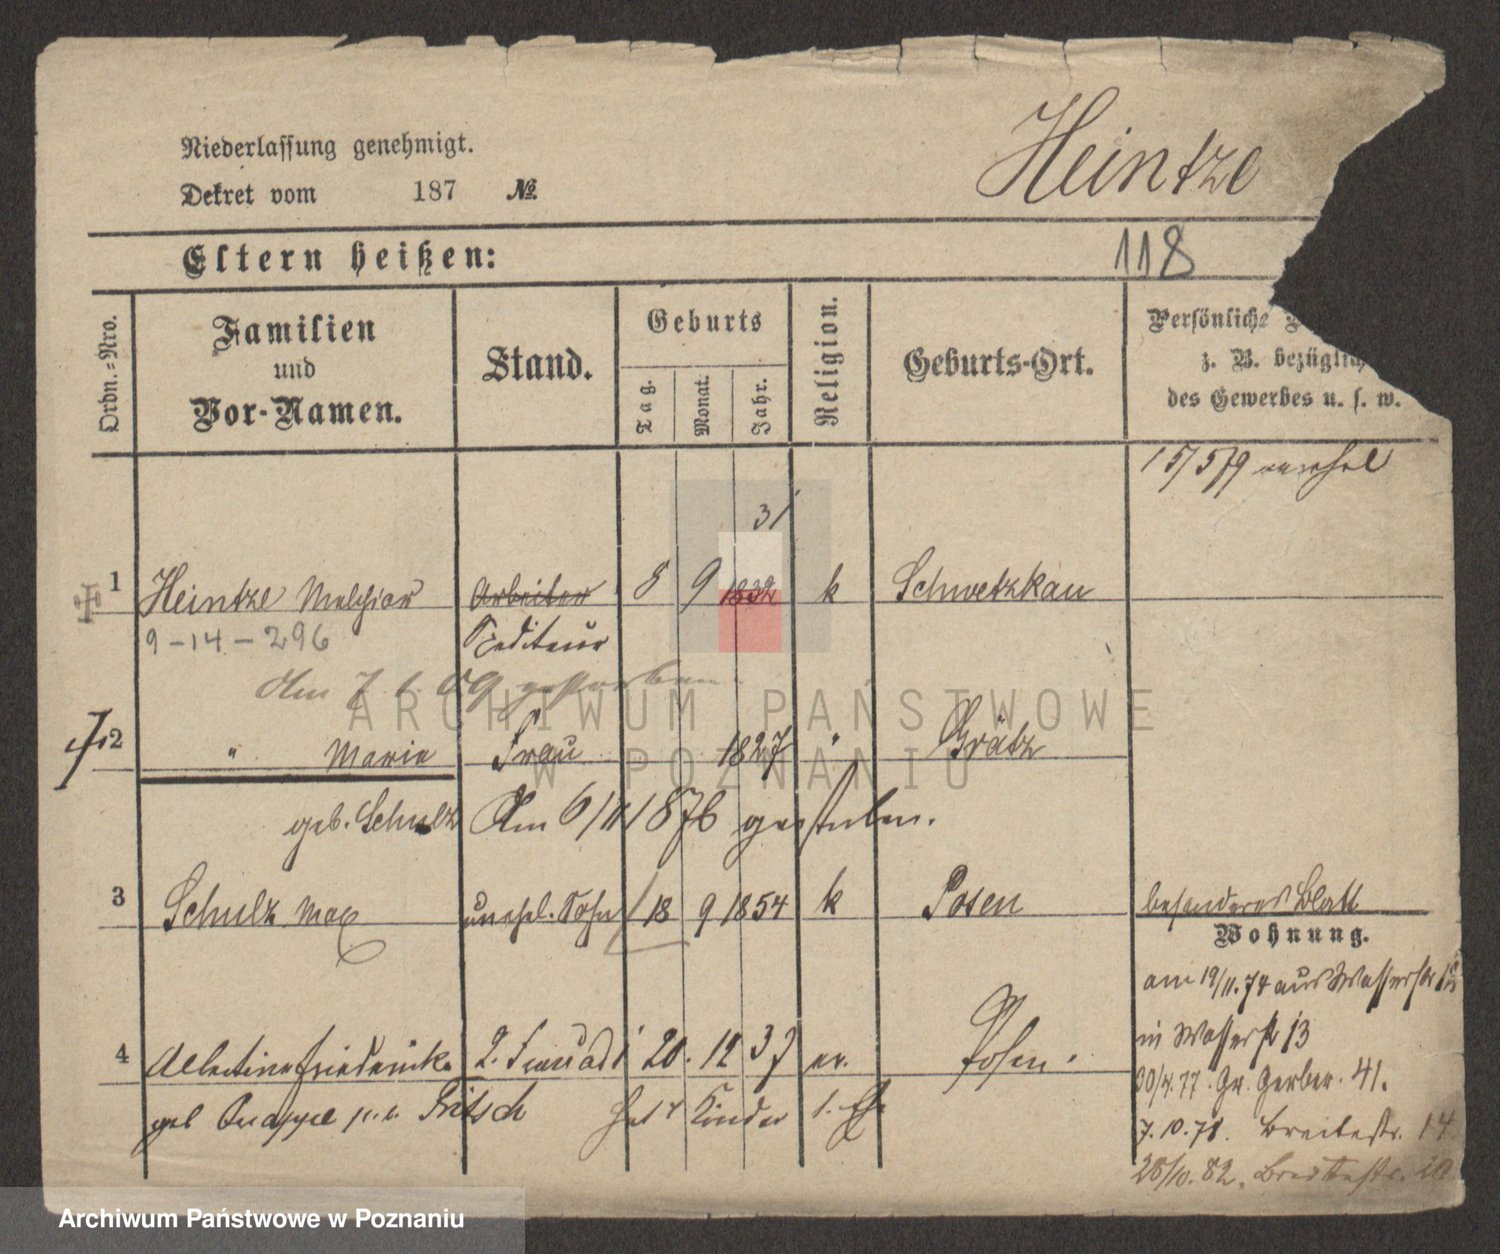 Heintze
Niederlassung genehmigt.
Dekret vom 187 №
Eltern heißen:
118
Ordn.-Nro.
Familien
und
Vor-Namen.
Stand.
Geburts
Tag.
Monat.
Jahr.
Religion.
Geburts-Ort.
Persönliche
z. B. bezüglich
des Gewerbes u. s. w.
15/5 79
31
1 Heintze Melchior Arbeiter 8 9 1832 k Schwetzkau
9-14-296 Spediteur
Am 7. 6. 89 gestorben.
2 " Maria Frau 1827 " Grätz
geb. Schulz Am 6/11 1876 gestorben.
3 Schulz Max unehel. Sohn 18 9 1854 k Posen besonderes Blatt
Wohnung.
am 19/11. 74 aus Wasserstr
in Wasserstr 13
4 Albertine Friederike 2. Frau ad 1 20. 12 37 ev. Posen.
30/4. 77. Gr. Gerber. 41.
geb Knappe Gritsch hat Kinder 1. Ehe
7. 10. 78. Breitestr. 14
28/10. 82. Breitestr. 20
ARCHIWUM PAŃSTWOWE
W POZNANIU
Archiwum Państwowe w Poznaniu